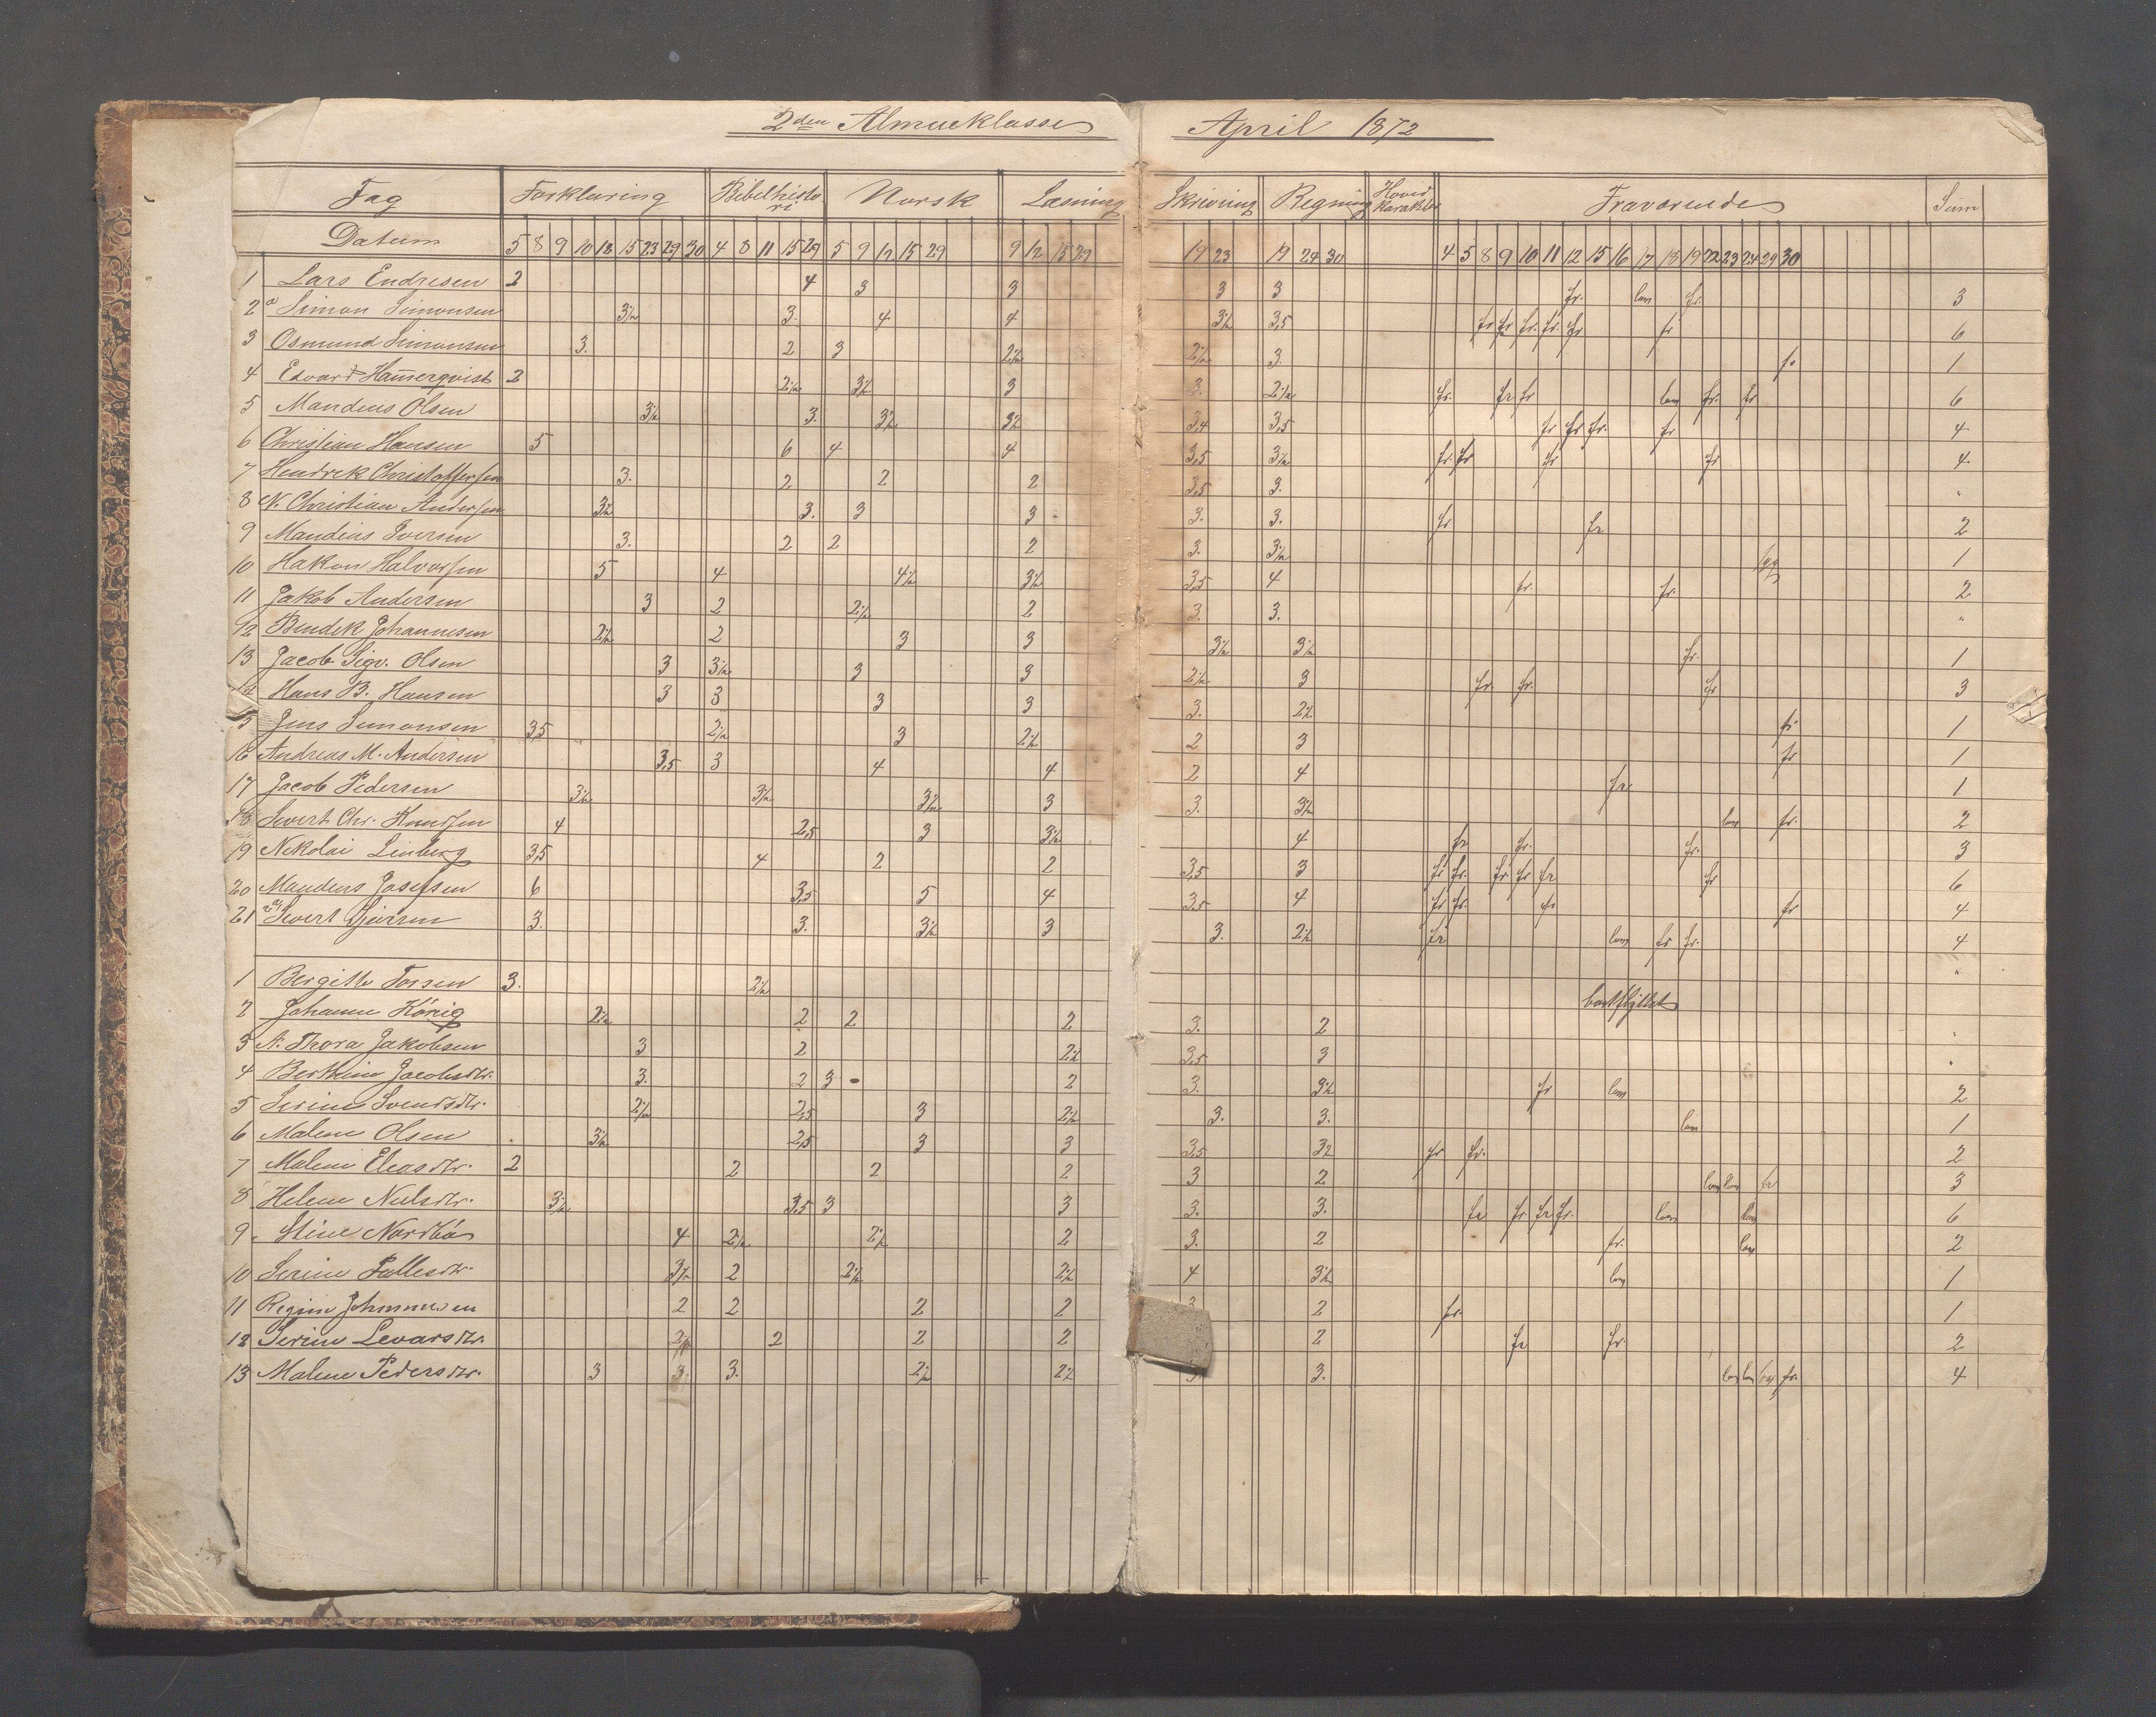 2den Almueklasse April 1872
Fag Forklaring Bibelhistori Norsk Læsning Skrivning Regning Hovedkarakter Fraværende Sum
Datum 5 8 9 10 12 15 23 29 30 4 8 11 15 29 5 9 12 15 29 9 12 15 29 19 23 19 24 30 4 5 8 9 10 11 12 15 16 17 18 19 22 23 24 29 30
1 Lars Endresen 2 4 3 3 3 3 fr. lov fr. 3
2 Simon Simonsen 3½ 3. 4 4 3½ 3,5 fr fr fr. fr. fr fr 6
3 Osmund Simonsen 3. 2 3 2½ 2½ 3. fr 1
4 Edvard Hamerqvist 2 2½ 3½ 3 3. 2½ fr. fr fr lov fr. fr 6
5 Mandius Olsen 3½ 3. 3½ 3½ 3,4 3,5 fr fr fr. fr 4
6 Christian Hansen 5 6 4 4 3,5 3½ fr. fr fr fr 4
7 Hendrek Christoffersen 3. 2 2 2 3,5 3. "
8 N. Christian Andersen 3½ 3. 3 3 3. 3. fr fr 2
9 Mandius Iversen 3. 2 2 2 3. 3½ 1
10 Hakon Halvorsen 5 4 4½ 3½ 3,5 4 fr. fr. 2
11 Jakob Andersen 3 2 2½ 2 3. 3. "
12 Bendek Johannesen 2½ 2 3 3 3½ 3½ fr. 1
13 Jacob Sigv. Olsen 3 3½ 3 3 2½ 3 fr. fr. fr 3
14 Hans B. Hansen 3 3 3 3 3. 2½ fr 1
15 Jens Simonsen 3,5 2½ 3 2½ 2 3 fr 1
16 Andreas M. Andersen 3,5 3 4 4 2 4 fr. 1
17 Jacob Pedersen 3½ 3½ 3½ 3 3. 3½ lov fr. 2
18 Sivert Chr. Knudsen 4 2,5 3 3½ 4 fr fr. fr. 3
19 Nikolai Linberg 3,5 4 2 2 3,5 3 fr fr. fr fr fr fr 6
20 Mandius Josefsen 6 3,5 5 4 3,5 4 fr fr. fr fr 4
21 Sivert 3. 3. 3½ 3 3. 2½ fr lov fr fr. 4
1 Bergitte Torsen 3. 2½ bortflyttet "
2 Johanne König 2½ 2 2 2 3. 2 "
3 A. Thora Jakobsen 3 2 2½ 3,5 3 "
4 Berthine Jacobsdtr. 3. 2 3 2 3. 3½ fr lov 2
5 Serine Svendsdtr. 2½ 2,5 3 2½ 3. 3. lov 1
6 Malene Olsen 3½ 2,5 3 3 3,5 3½ fr fr. 2
7 Maline Eleasdtr. 2 2 2 2 3 2 lov lov fr 3
8 Helene Nielsdtr. 3½ 3,5 3 3 3. 3. fr fr fr fr. lov lov 6
9 Stine Nordbö 4 2½ 2½ 2 3. 2 fr. lov 2
10 Serine Pallesdtr. 3½ 2 2½ 2½ 4 3½ lov 1
11 Regine Johannesen 2 2 2 2 3 2 fr. 1
12 Serine Levarsdtr. 2½ 2 2 2 2 fr fr. 2
13 Malene Pedersdtr. 3 3. 3. 2½ 2½ 3. lov lov fr. 4